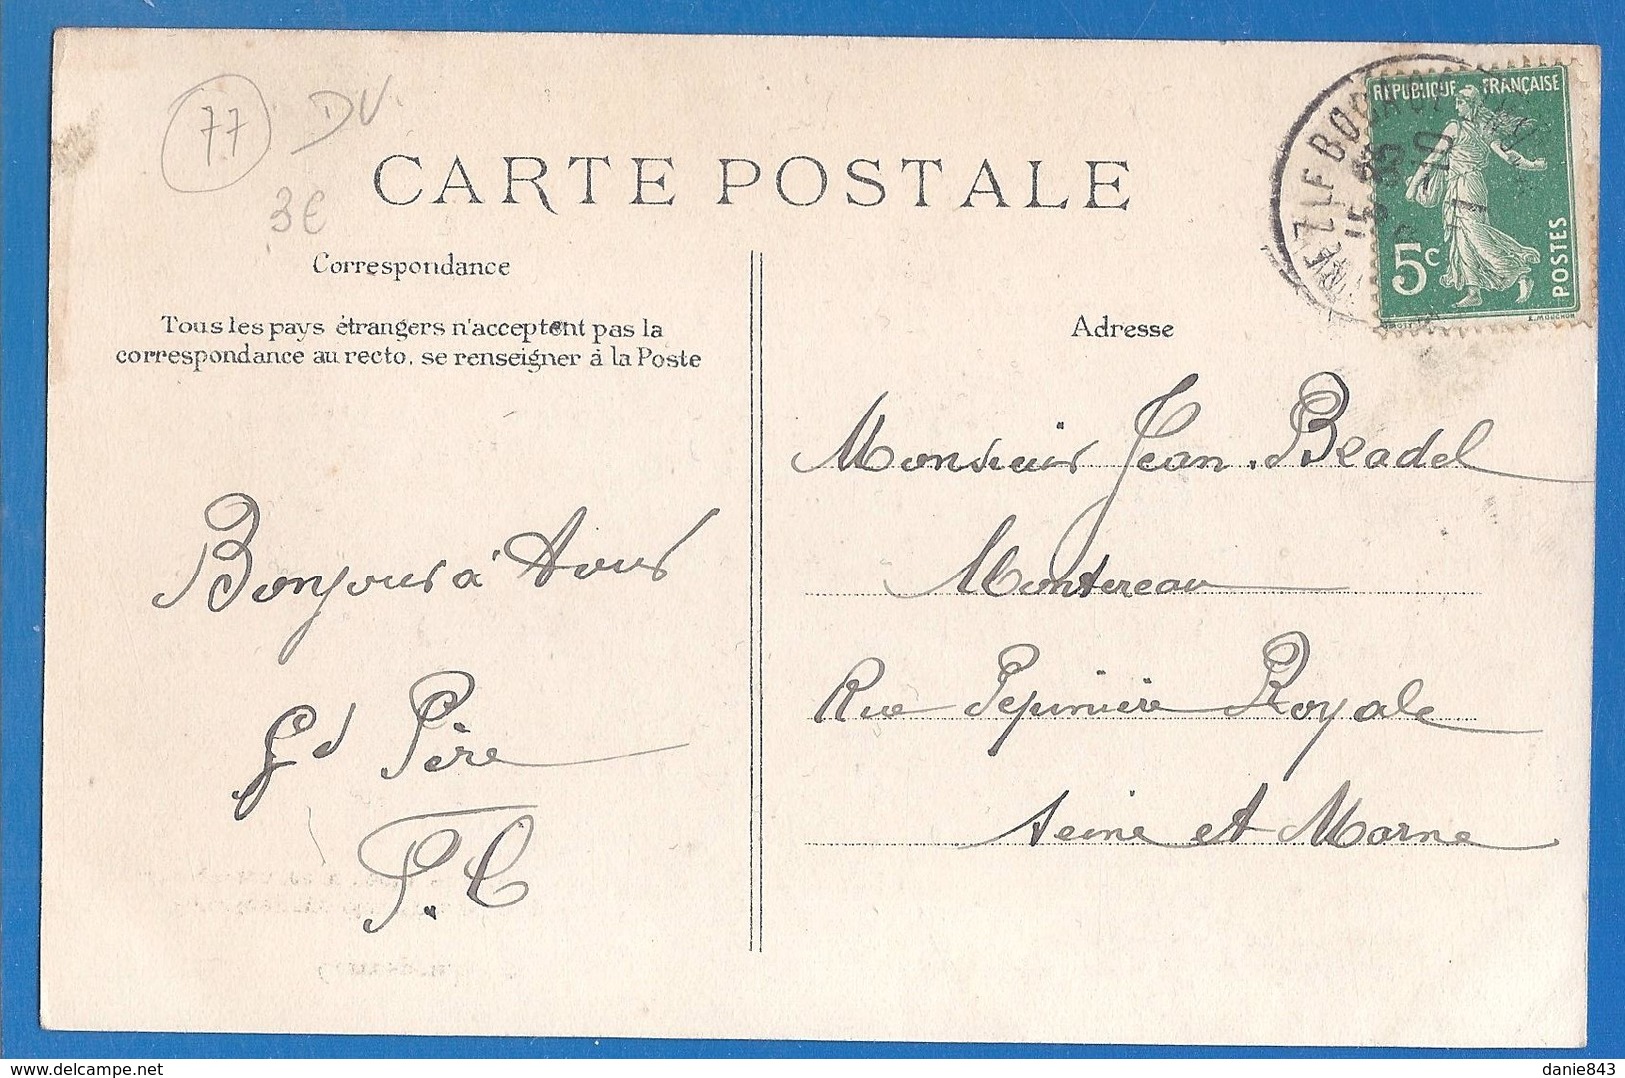 77
DV
3€
CARTE POSTALE
RÉPUBLIQUE FRANÇAISE
5c
POSTES
E. MOUCHON
Correspondance
Tous les pays étrangers n'acceptent pas la
correspondance au recto, se renseigner à la Poste
Bonjour à tous
Gd Père
P. C
Adresse
Monsieur Jean Beadel
Montereau
Rue Pepinière Royale
Seine et Marne
danie843